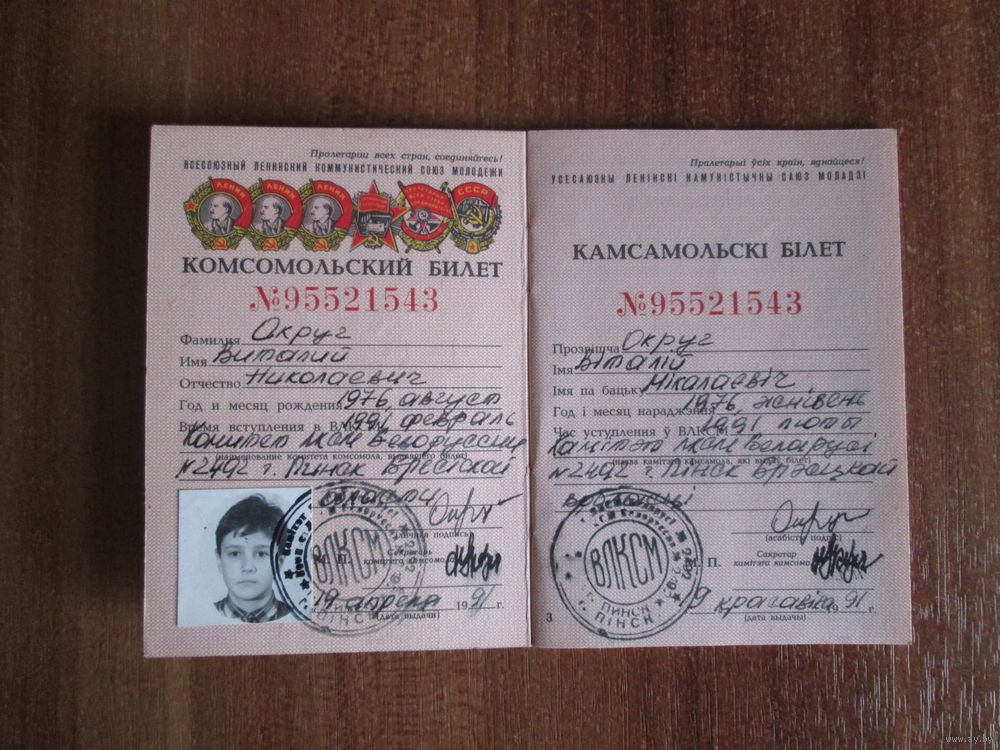 Пролетарии всех стран, соединяйтесь!
ВСЕСОЮЗНЫЙ ЛЕНИНСКИЙ КОММУНИСТИЧЕСКИЙ СОЮЗ МОЛОДЕЖИ
ЛЕНИН ЛЕНИН ЛЕНИН СССР
КОМСОМОЛЬСКИЙ БИЛЕТ
№95521543
Фамилия Округ
Имя Виталий
Отчество Николаевич
Год и месяц рождения 1976, август
Время вступления в ВЛКСМ 1991, февраль
Комитет ЛКСМ Белоруссии
(наименование комитета комсомола, выдавшего билет)
№2492 г. Пинск Брестской
области
(личная подпись)
Секретарь
М. П. комитета комсомола
ВЛКСМ
19 апреля 1991 г.
(дата выдачи)
ПІНСК
Пралетарыі ўсіх краін, яднайцеся!
УСЕСАЮЗНЫ ЛЕНІНСКІ КАМУНІСТЫЧНЫ САЮЗ МОЛАДЗІ
КАМСАМОЛЬСКІ БІЛЕТ
№95521543
Прозвішча Округ
Імя Віталій
Імя па бацьку Мікалаевіч
Год і месяц нараджэння 1976, жнівень
Час уступлення ў ВЛКСМ 1991 люты
Камітэт ЛКСМ Беларусі
(назва камітэта камсамола, які выдаў білет)
№2492 г. Пінск Брэсцкай
вобласці
(асабісты подпіс)
Сакратар
М. П. камітэта камсамола
ВЛКСМ
19 красавіка 1991 г.
(дата выдачы)
ПИНСК
ПІНСК
3
www.ay.by